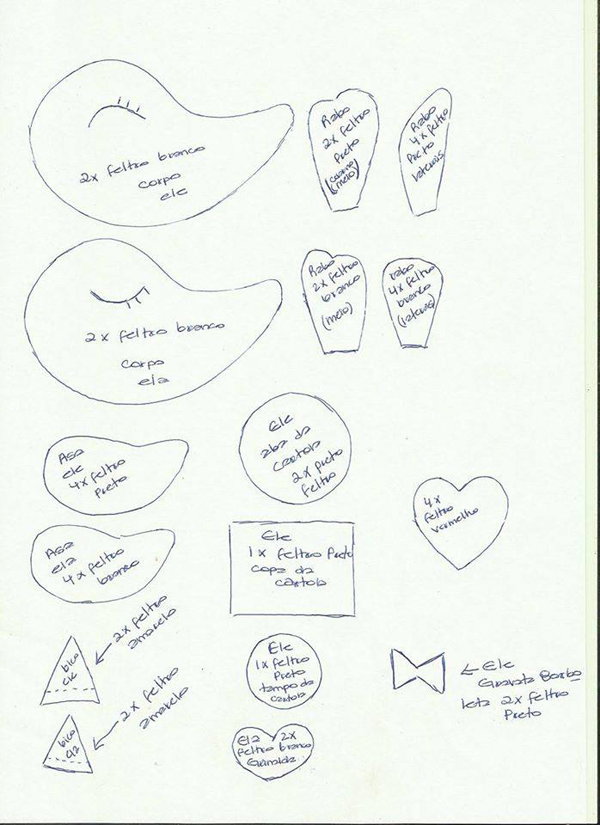 2x feltro branco
corpo
ele
Rabo
2x feltro
Preto
(meio)
Rabo
4x feltro
Preto
laterais
2x feltro branco
corpo
ela
Rabo
2x feltro
branco
(meio)
rabo
4x feltro
branco
(laterais)
Asa
ele
4x feltro
Preto
Ele
aba da
cartola
2x preto
feltro
4x
feltro
vermelho
Asa
ela
4x feltro
branco
Ele
1x feltro Preto
copa da
cartola
bico
ele
2x feltro
amarelo
Ele
1x feltro
Preto
tampo da
cartola
Ele
Gravata Borbo
leta 2x feltro
Preto
bico
ela
2x feltro
amarelo
Ela 2x
feltro branco